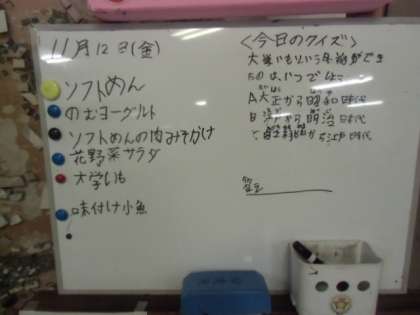 11月12日(金)
ソフトめん
のむヨーグルト
ソフトめんの肉みそかけ
花野菜サラダ
大学いも
味付け小魚
<今日のクイズ>
大学いもという名前ができ
たのは、いつでしょ
A大正から昭和時代
B江戸から明治時代
から江戸時代
答え